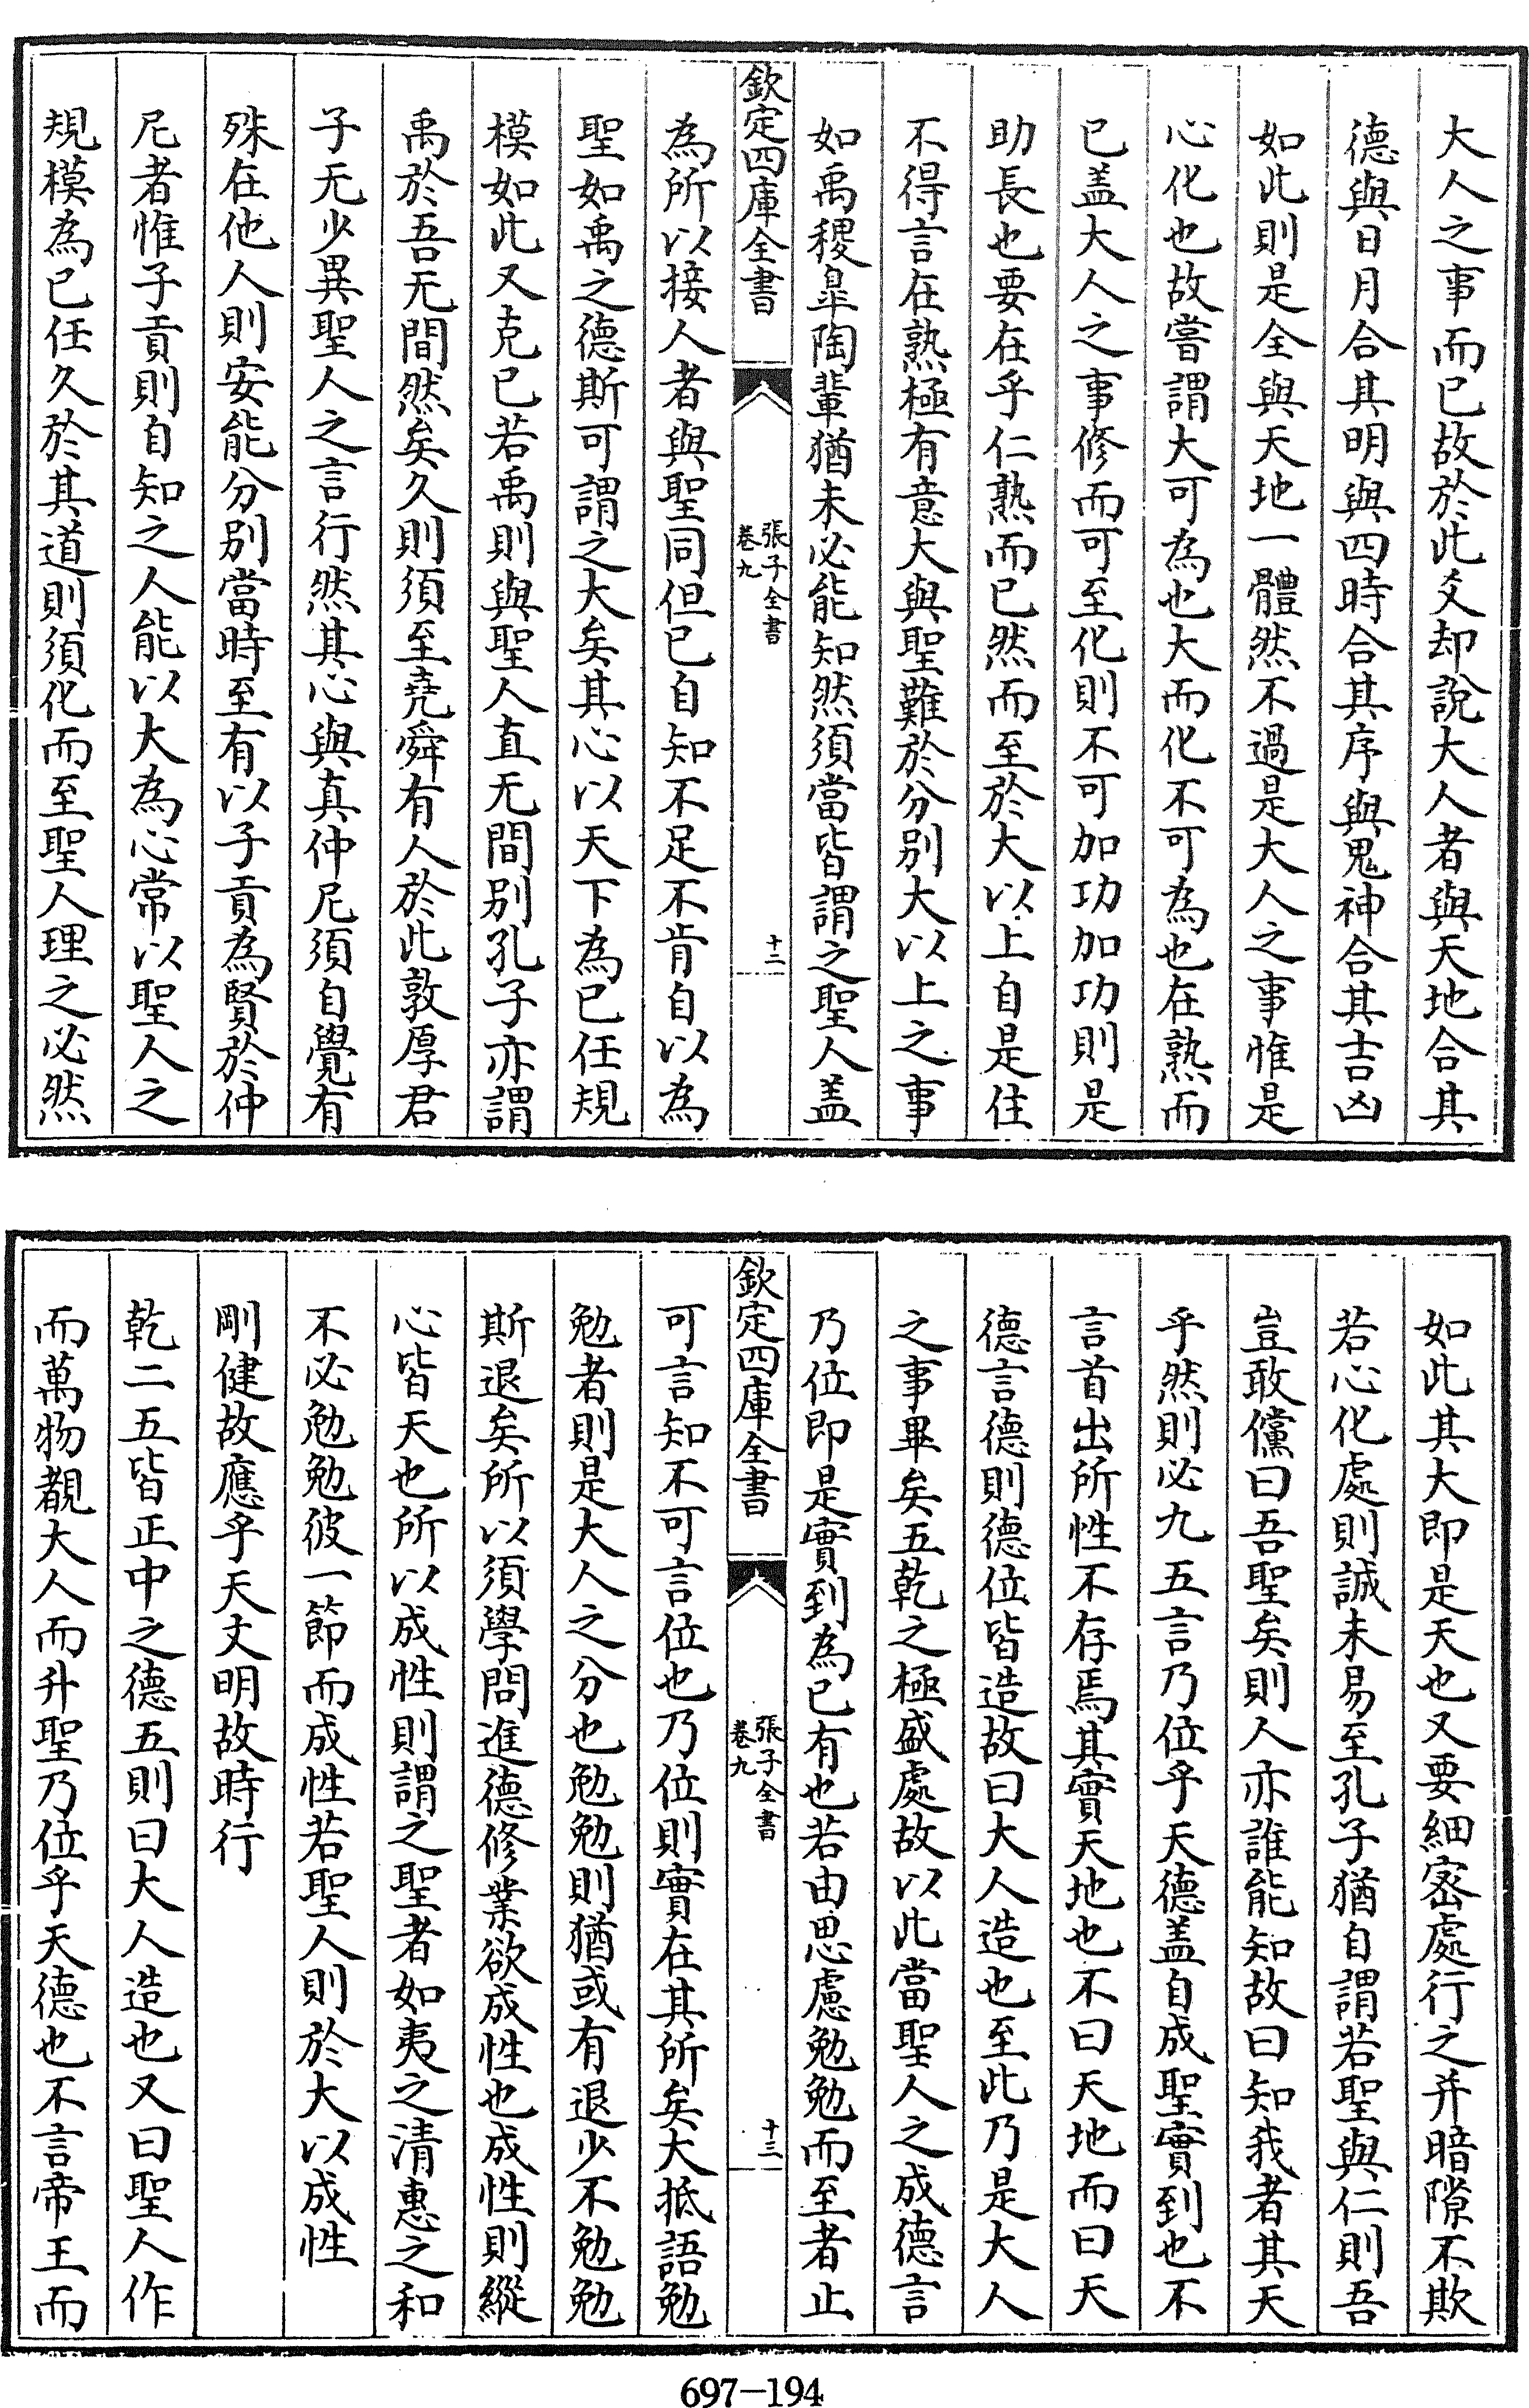 大人之事而已故於此爻却說大人者與天地合其
德與日月合其明與四時合其序與鬼神合其吉凶
如此則是全與天地一體然不過是大人之事惟是
心化也故嘗謂大可為也大而化不可為也在熟而
已盖大人之事修而可至化則不可加功加功則是
助長也要在乎仁熟而已然而至於大以上自是住
不得言在熟極有意大與聖難於分别大以上之事
如禹稷臯陶輩猶未必能知然須當皆謂之聖人盖
欽定四庫全書
張子全書
卷九
十二
為所以接人者與聖同但已自知不足不肯自以為
聖如禹之德斯可謂之大矣其心以天下為已任規
模如此又克已若禹則與聖人直无間别孔子亦謂
禹於吾无間然矣久則須至堯舜有人於此敦厚君
子无少異聖人之言行然其心與真仲尼須自覺有
殊在他人則安能分别當時至有以子貢為賢於仲
尼者惟子貢則自知之人能以大為心常以聖人之
規模為已任久於其道則須化而至聖人理之必然
如此其大即是天也又要細密處行之并暗隙不欺
若心化處則誠未易至孔子猶自謂若聖與仁則吾
豈敢儻曰吾聖矣則人亦誰能知故曰知我者其天
乎然則必九五言乃位乎天德盖自成聖實到也不
言首出所性不存焉其實天地也不曰天地而曰天
德言德則德位皆造故曰大人造也至此乃是大人
之事畢矣五乾之極盛處故以此當聖人之成德言
乃位即是實到為已有也若由思慮勉勉而至者止
欽定四庫全書
張子全書
卷九
十三
可言知不可言位也乃位則實在其所矣大抵語勉
勉者則是大人之分也勉勉則猶或有退少不勉勉
斯退矣所以須學問進德修業欲成性也成性則縱
心皆天也所以成性則謂之聖者如夷之清惠之和
不必勉勉彼一節而成性若聖人則於大以成性
剛健故應乎天文明故時行
乾二五皆正中之德五則曰大人造也又曰聖人作
而萬物覩大人而升聖乃位乎天德也不言帝王而
697-194